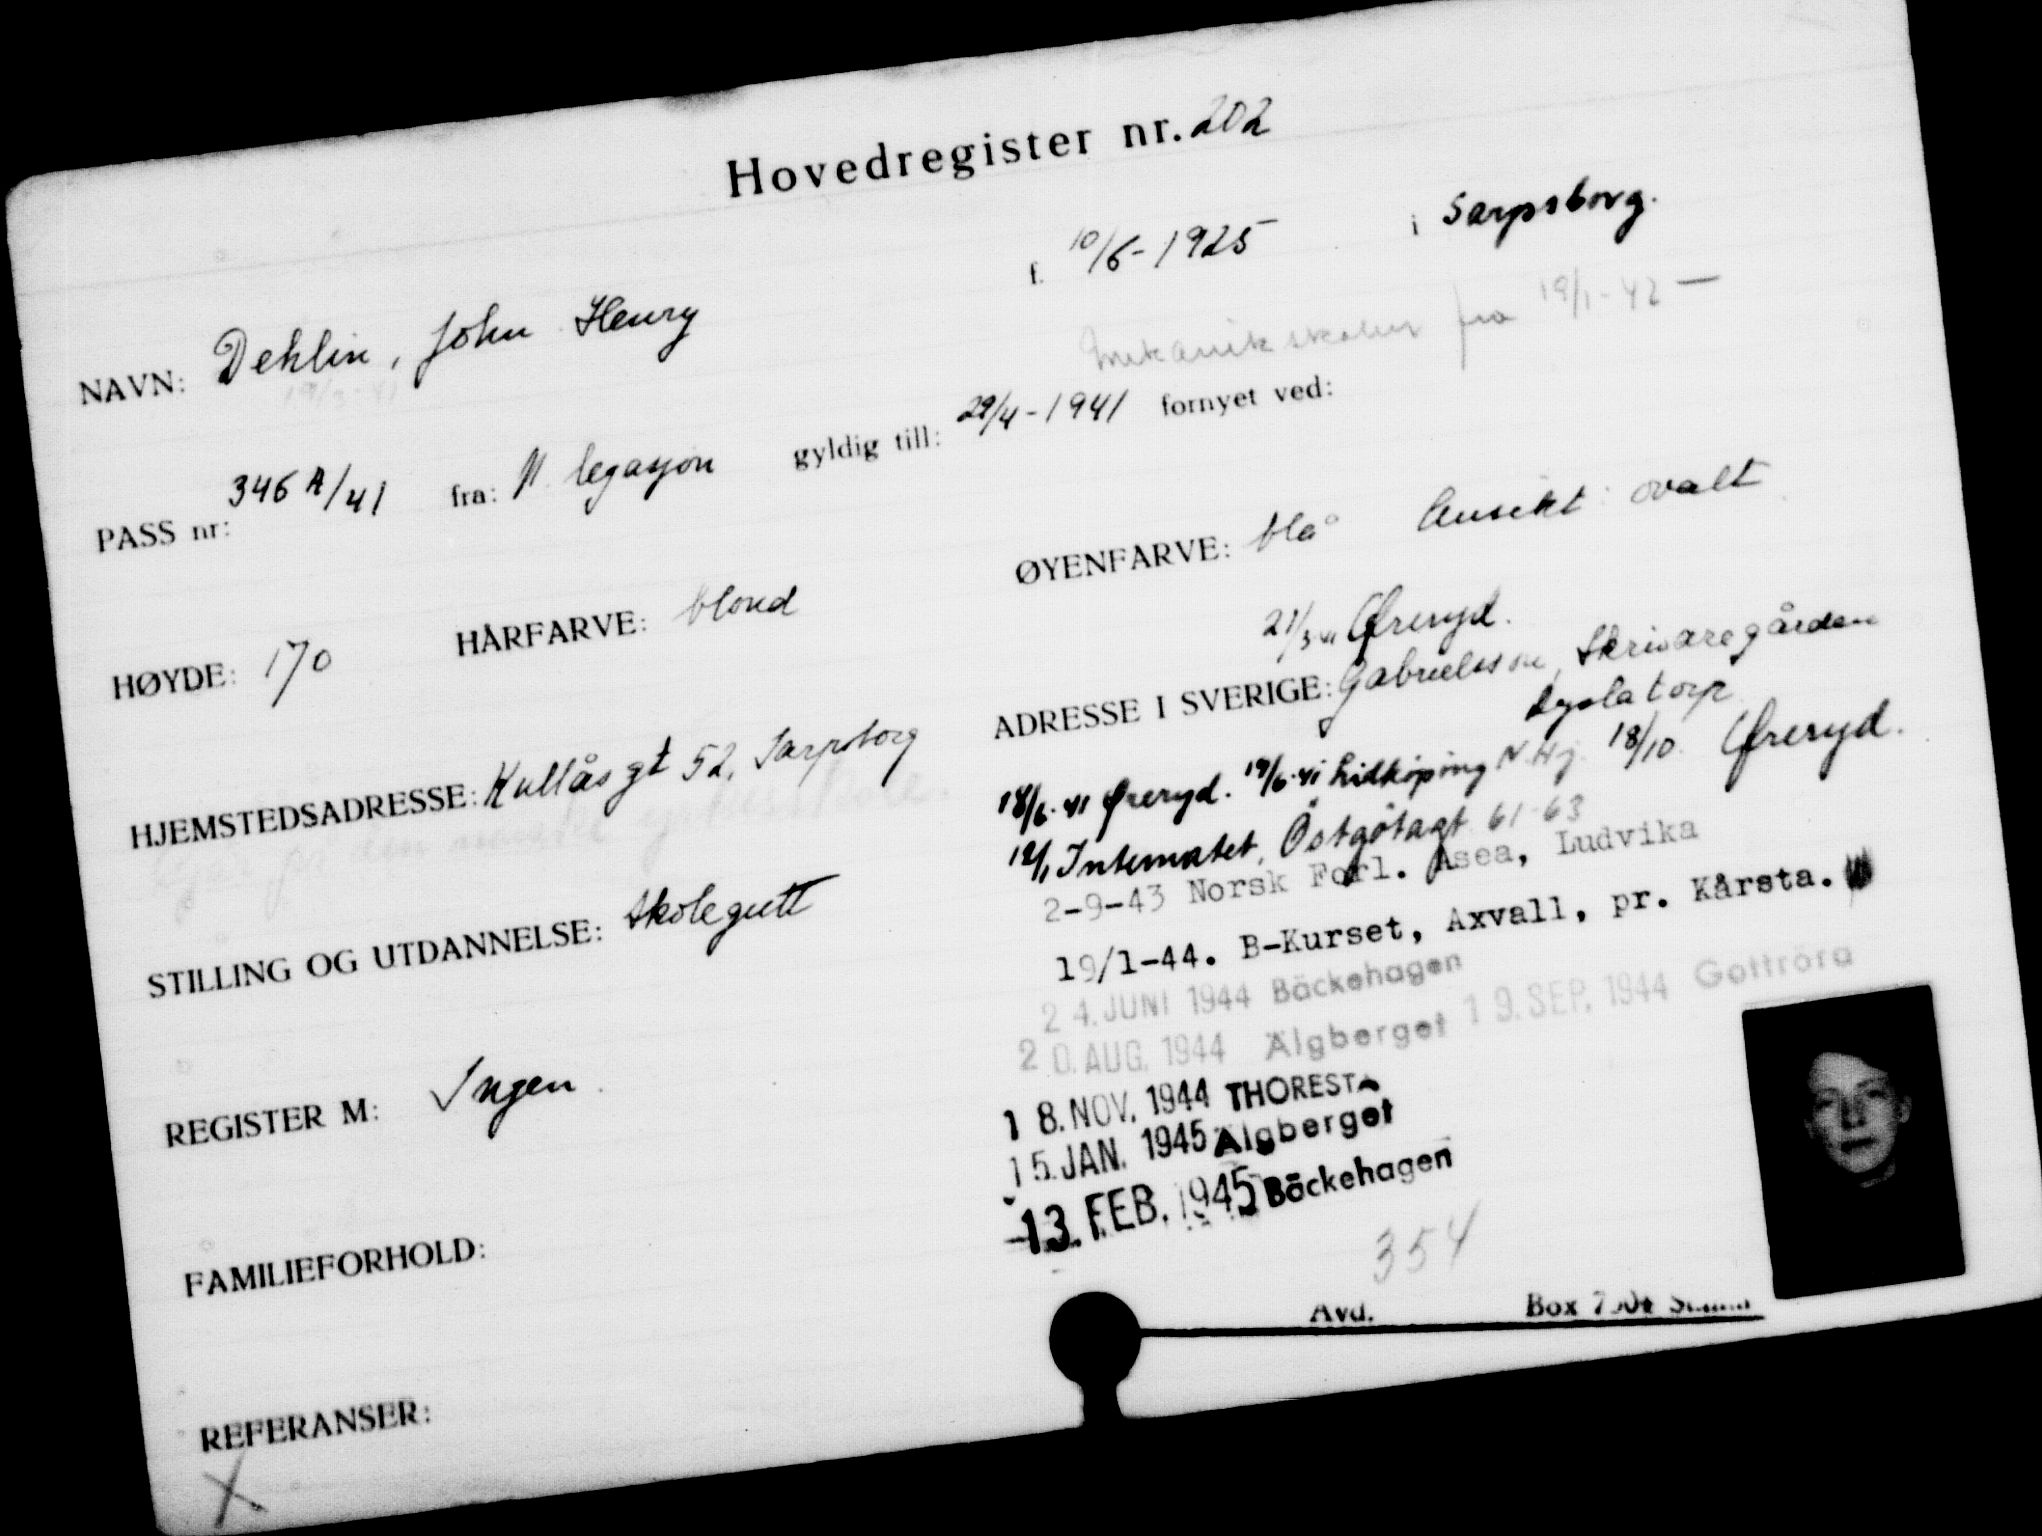 Hovedregister nr. 202
NAVN: Dehlin, John Henry f. 10/6-1925 i Sarpsborg.
19/3-41
Mekanikskolen fra 19/1-42 —
PASS nr: 346 A/41 fra: N. legasjon gyldig till: 29/4-1941 fornyet ved:
HØYDE: 170 HÅRFARVE: blond ØYENFARVE: blå Ansikt: ovalt
21/3 41 Øreryd.
HJEMSTEDSADRESSE: Kullåsgt 52, Sarpsborg ADRESSE I SVERIGE: Gabrielsson, Skrivaregården
18/6.41 Øreryd. 19/6.41 Lidköping 18/10. Øreryd.
den norske
12/1 Internatet, Östgötagt 61-63
2-9-43 Norsk Forl. Asea, Ludvika
STILLING OG UTDANNELSE: Skolegutt
19/1-44. B-Kurset, Axvall, pr. Kårsta.
24. JUNI 1944 Bäckehagen
20. AUG. 1944 Älgberget 19. SEP. 1944 Gottröra
REGISTER M: Ingen.
18. NOV. 1944 THORESTA
15. JAN. 1945 Älgberget
13. FEB. 1945 Bäckehagen
FAMILIEFORHOLD:
354
Avd. Box
REFERANSER:
X